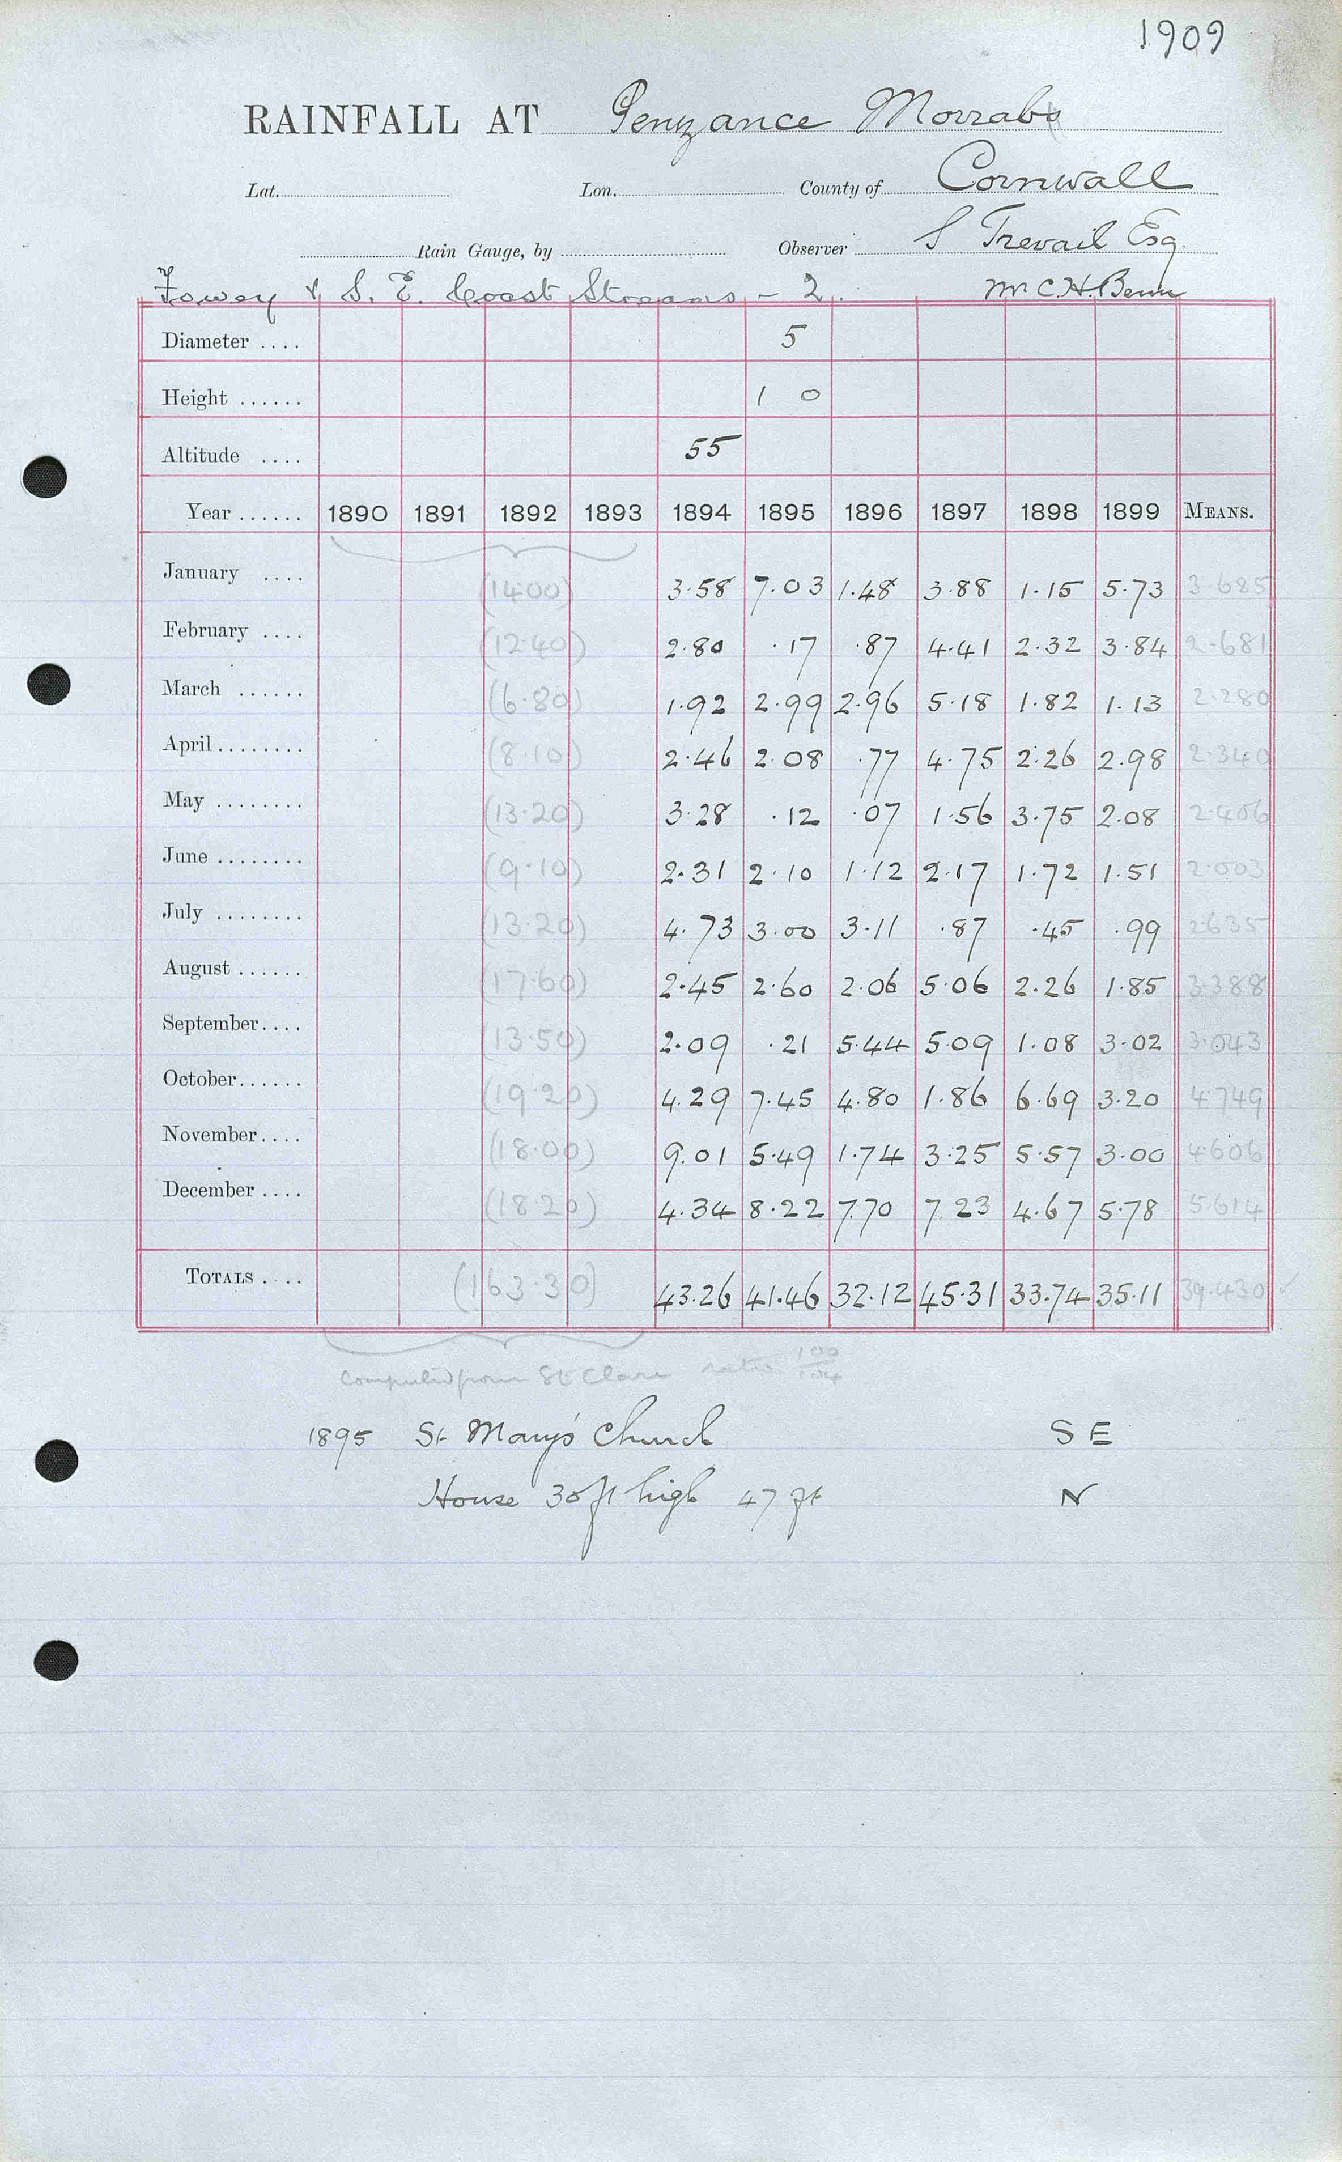 1909
RAINFALL AT Penzance Morrab
Lat. Lon. County of Cornwall
Rain Gauge, by Observer S Trevail Esq
Fowey & S. E. Coast Streams - 2. Mr C. H. Benn
Diameter .... 5
Height ...... 1 0
Altitude .... 55
Year ...... 1890 1891 1892 1893 1894 1895 1896 1897 1898 1899 MEANS.
January .... (14.00) 3.58 7.03 1.48 3.88 1.15 5.73 3.685
February .... (12.40) 2.80 .17 .87 4.41 2.32 3.84 2.681
March ...... (6.80) 1.92 2.99 2.96 5.18 1.82 1.13 2.280
April ........ (8.10) 2.46 2.08 .77 4.75 2.26 2.98 2.340
May ........ (13.20) 3.28 .12 .07 1.56 3.75 2.08 2.406
June ........ (9.10) 2.31 2.10 1.12 2.17 1.72 1.51 2.003
July ........ (13.20) 4.73 3.00 3.11 .87 .45 .99 2635
August ...... (17.60) 2.45 2.60 2.06 5.06 2.26 1.85 3.388
September.... (13.50) 2.09 .21 5.44 5.09 1.08 3.02 3.043
October...... (19.20) 4.29 7.45 4.80 1.86 6.69 3.20 4.749
November.... (18.00) 9.01 5.49 1.74 3.25 5.57 3.00 4606
December .... (18.20) 4.34 8.22 7.70 7.23 4.67 5.78 5.614
TOTALS .... (163.30) 43.26 41.46 32.12 45.31 33.74 35.11 39.430
Computed from St Clare ratio 100/104
1895 St Mary's Church S E
House 30 ft high 47 ft N